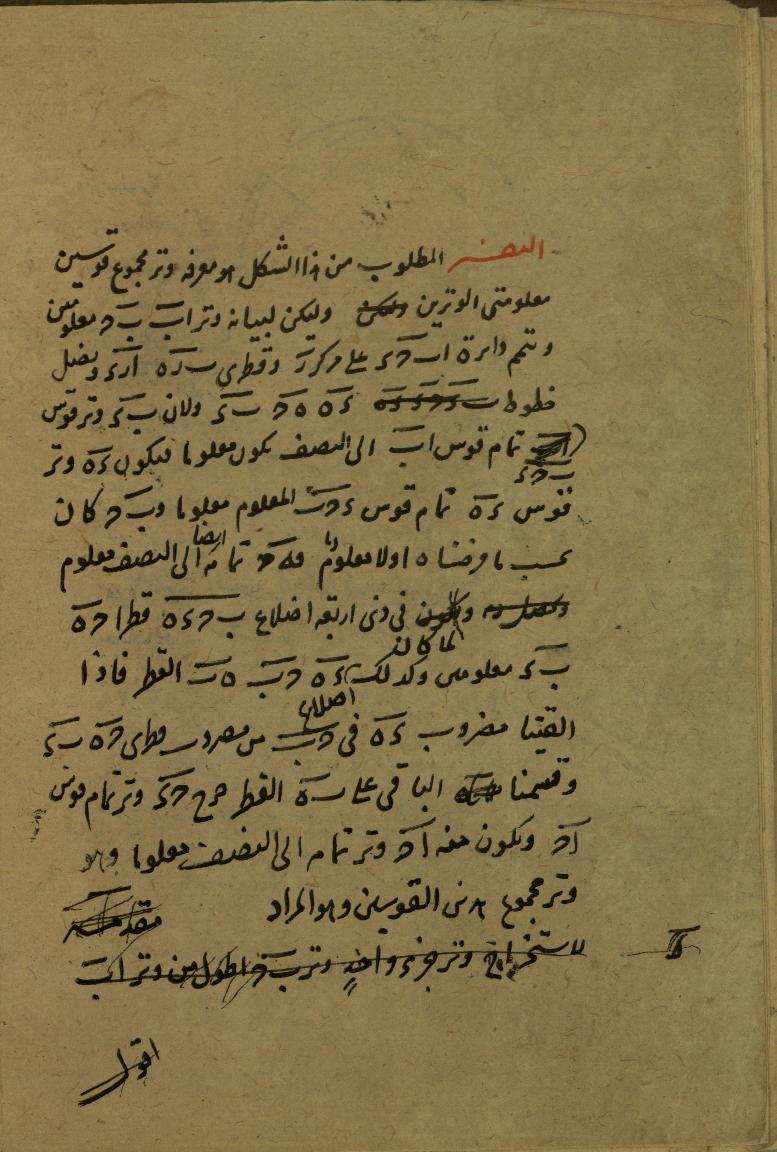 المطلوب من هذا الشكل هو معرفه وتر مجموع قوسين
معلومتى الوترين وليكن لبيانه وترا اب ب حـ معلومين
ونتمم دايرة اب حـ ء على مركز ر وقطرى ب ر ه ا ر ء ونصل
خطوط ء ه ه حـ ب ء ولان ب ء وتر قوس
ب حـ ء تمام قوس اب الى النصف يكون معلوما فيكون ء ه وتر
قوس ء ه تمام قوس ء حـ ب المعلوم معلوما و ب حـ كان
بحسب ما فرضناه اولا معلوما فـ ه حـ تمامه ايضا الى النصف معلوم
وفى ذى اربعه اضلاع ب حـ ء ه قطرا حـ ه
ب ء معلومين وكذلك اضلاع ء ه حـ ب ه ب القطر فاذا
القينا مضروب ء ه فى حـ ب من مضروب قطرى حـ ه ب ء
وقسمنا الباقى على ب ه القطر خرج حـ ء وتر تمام قوس
ا حـ ويكون منه ا حـ وتر تمامه الى النصف معلوما وهو
وتر مجموع هذين القوسين وهو المراد
مقدمه
لاستخراج وتر جزء واحد وتر ب حـ اطول من وتر اب
اقول